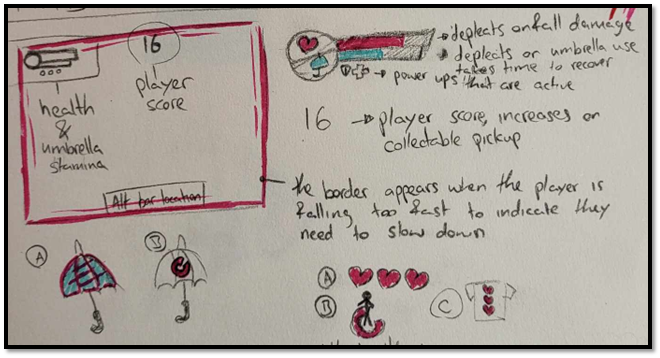 16
player
score
health
&
umbrella
stamina
Alt bar location
A
B
depleats on fall damage
depleats on umbrella use
takes time to recover
power ups that are active
16
player score, increases on
collectable pickup
the border appears when the player is
falling too fast to indicate they
need to slow down
A
B
C